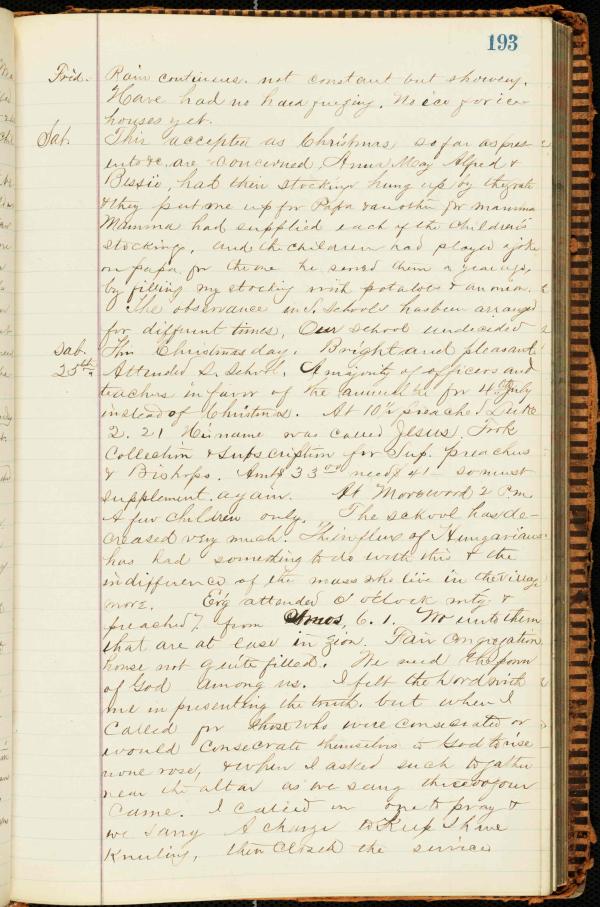 193
Frid. Rain continues. not constant but showery.
Have had no hard freezing. No ice for ice
houses yet.
Sat. This accepted as Christmas so far as pres-
ents &c are concerned. Anna May Alfred &
Bessie, had their stockings hung up by the grate
& they put one up for Papa & another for mamma
Mamma had supplied each of the children's
stocking, and the children had played a joke
on papa, for the one he served them a year ago,
by filling my stocking with potatoes & an onion.
The observance in S. Schools has been arranged
for different times, Our school undecided
Sab. This Christmas day. Bright and pleasant.
25th Attended S. School. A majority of officers and
teachers in favor of the for 4th July
instead of Christmas. At 10½ preached Luke
2. 21 His name was called Jesus. Took
Collection & Subscription for Sup. preachers
& Bishops. Amt $33.00 need $41 so must
supplement again. At Morewood 2 P.m.
A few children only. The school has de-
creased very much. The influx of Hungarians
has had something to do with this & the
indifference of the mass who live in the village
more. Ev'g attended 6 o'clock mtg &
preached 7 from Amos 6. 1. Wo unto them
that are at ease in Zion. Fair Congregation
house not quite filled. We need the power
of God among us. I felt the Lord with
me in presenting the truth. but when I
Called for those who were consecrated or
would consecrate themselves to God to rise
none rose, & when I asked such to gather
near the altar as we sang three or four
Came. I called on one to pray &
we sang A charge to Keep I have
Kneeling, then closed the service